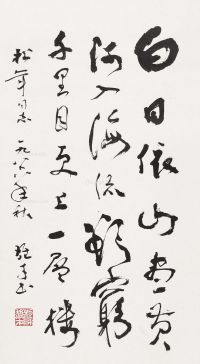 白日依山尽黄
河入海流欲窮
千里目更上一层楼
松年同志 一九八年秋 书